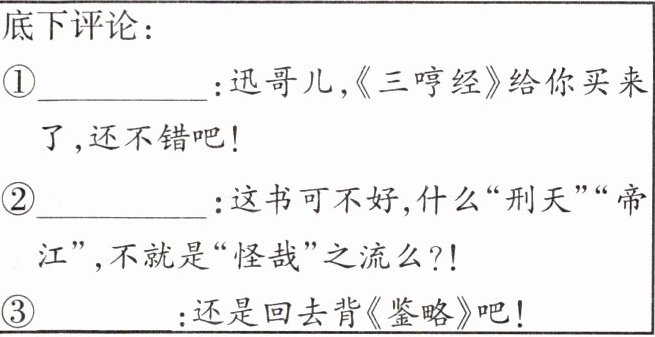 底下评论:
①__________:迅哥儿,《三哼经》给你买来
了,还不错吧!
②__________:这书可不好,什么“刑天”“帝
江”,不就是“怪哉”之流么?!
③__________:还是回去背《鉴略》吧!